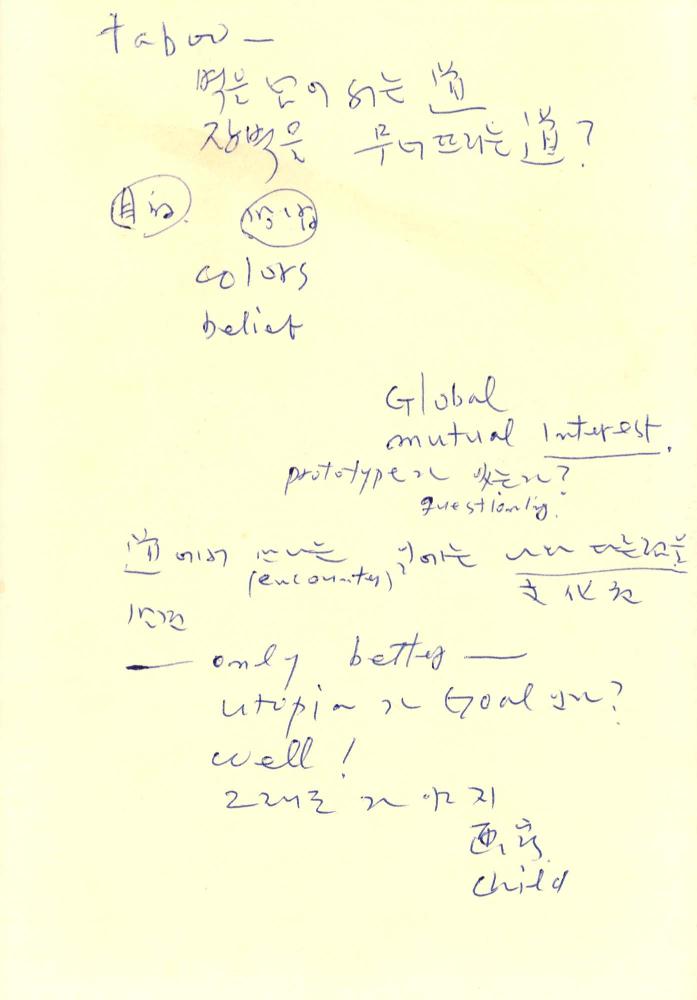 taboo —
벽을 넘어 서는 道
장벽을 무너뜨리는 道?
目的
colors
belief
Global
mutual Interest.
prototype가 있는가?
questioning.
道에서 만나는 에는
(encounter)
文化
발견
— only better —
utopia가 Goal인가?
well!
그래도 가야지
child